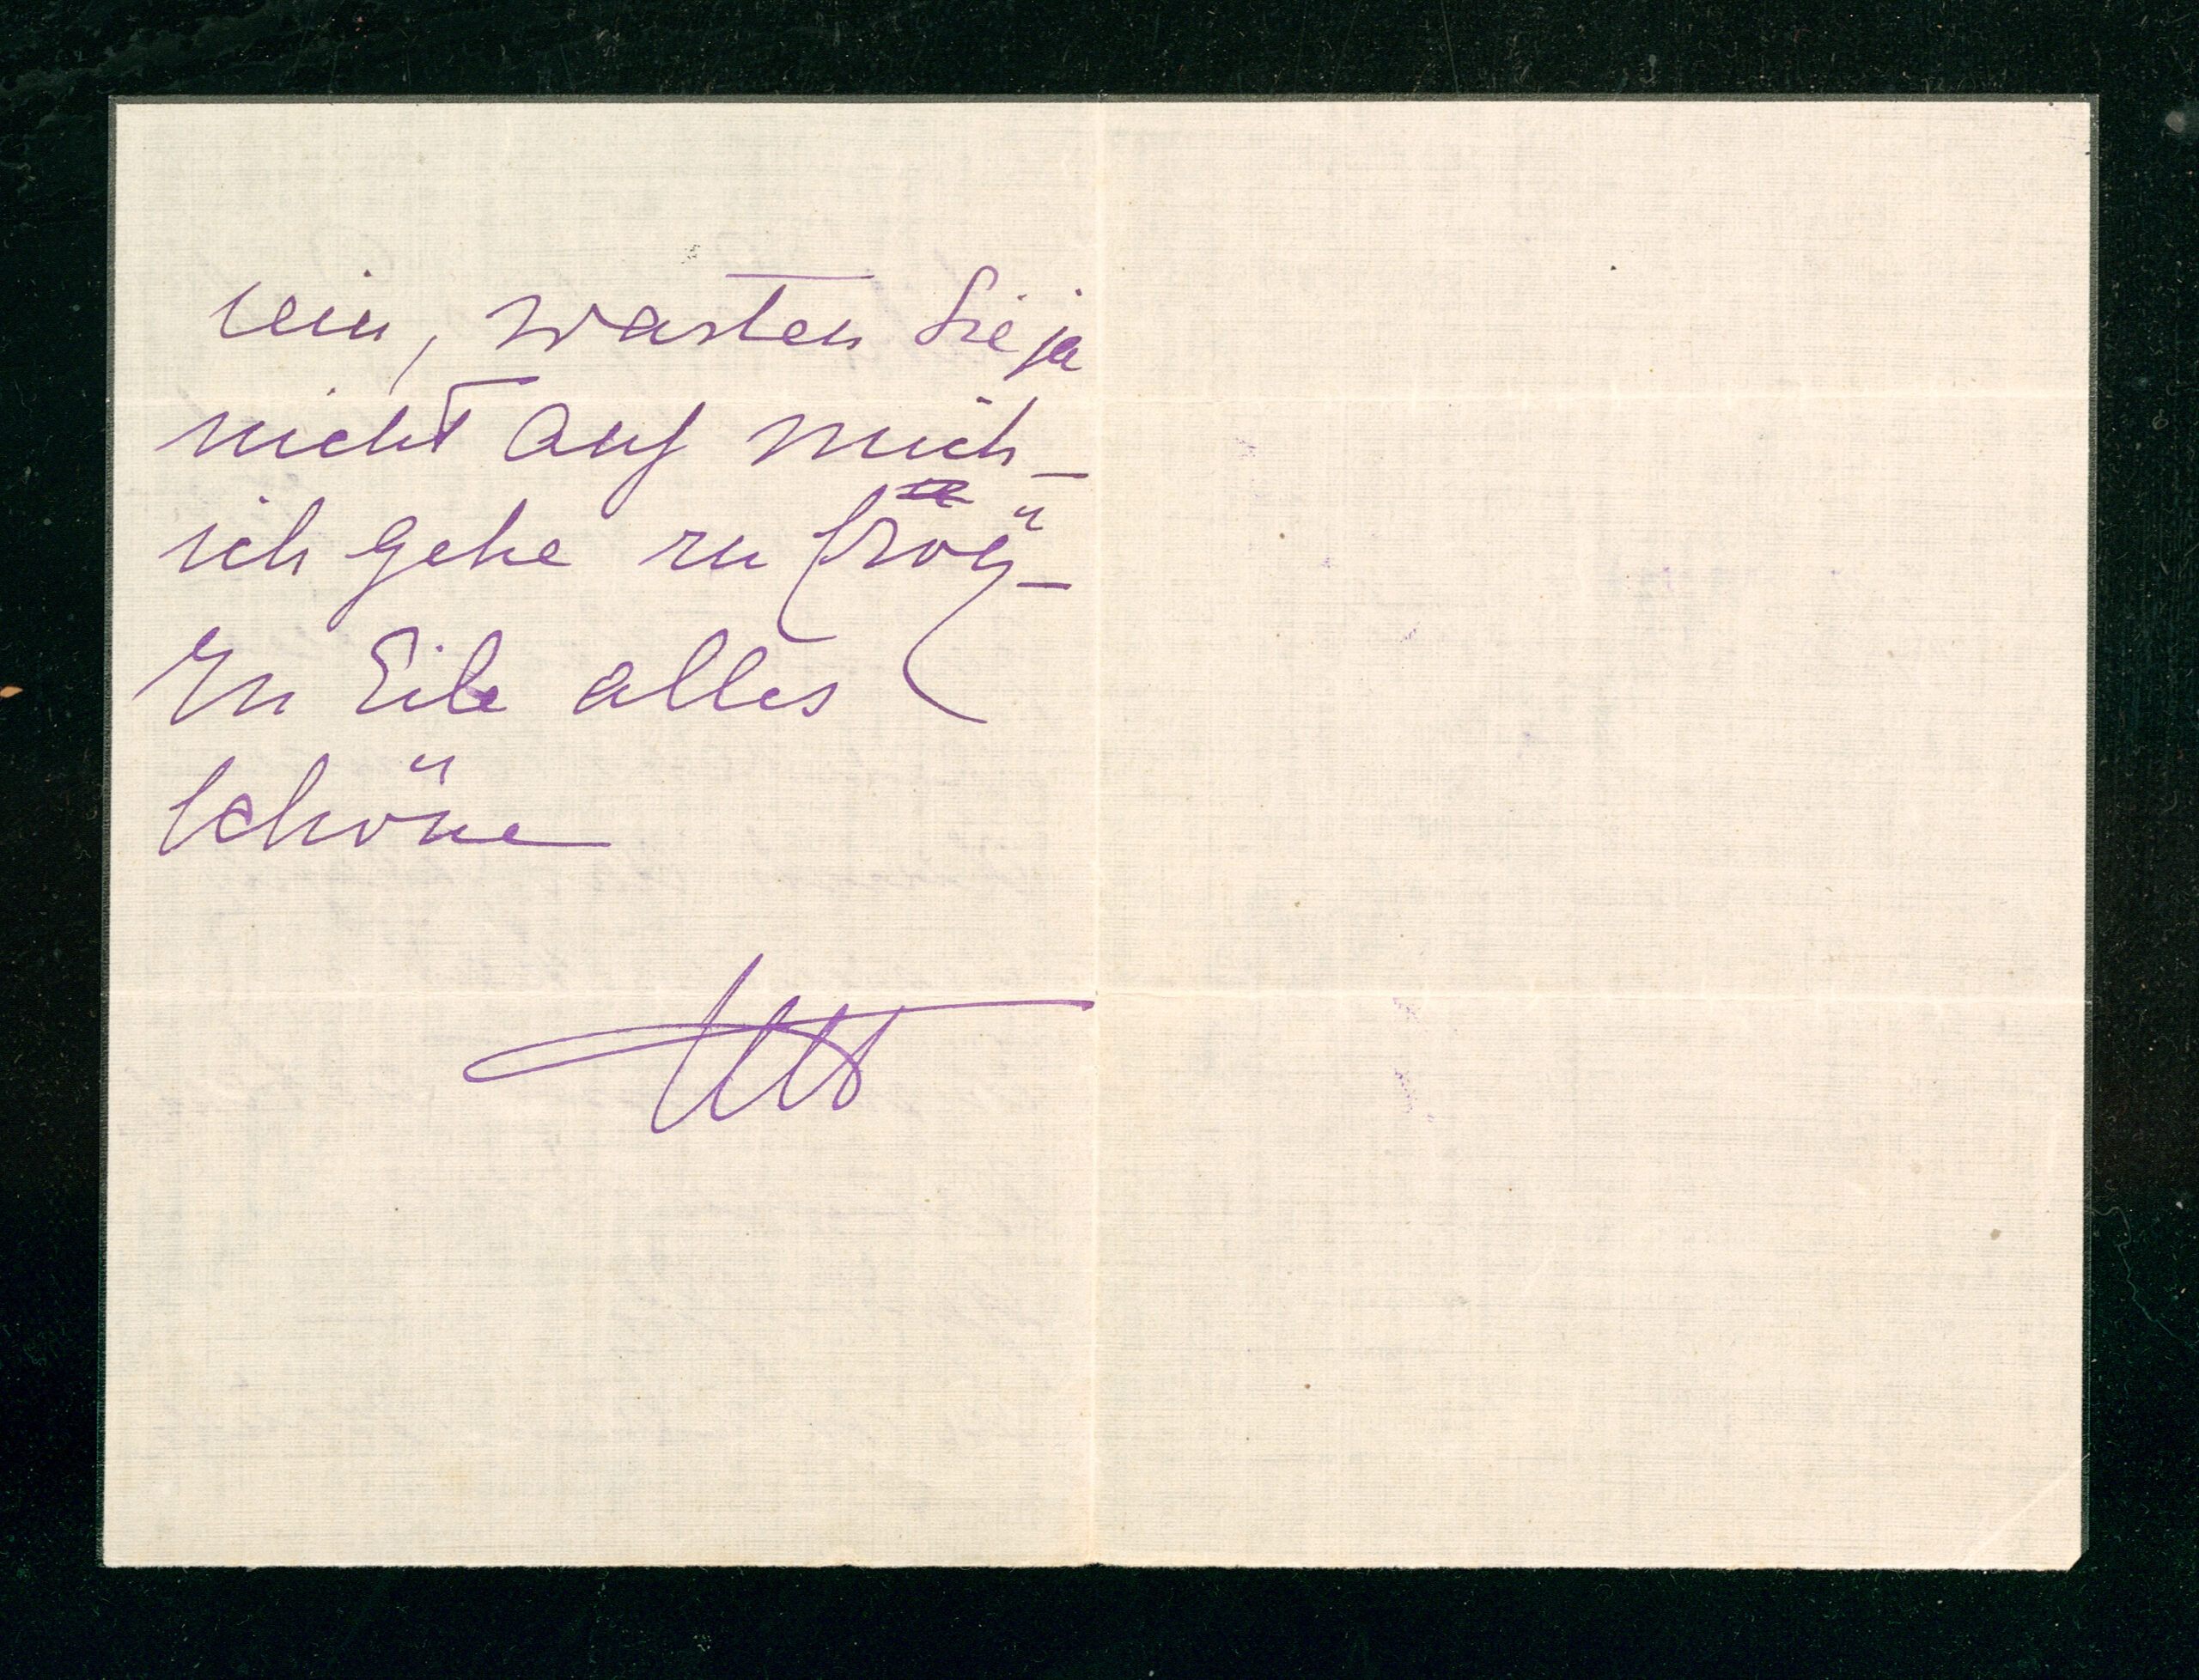 sein, warten Sie ja
nicht auf mich –
ich gehe zu
In Eile alles
Schöne